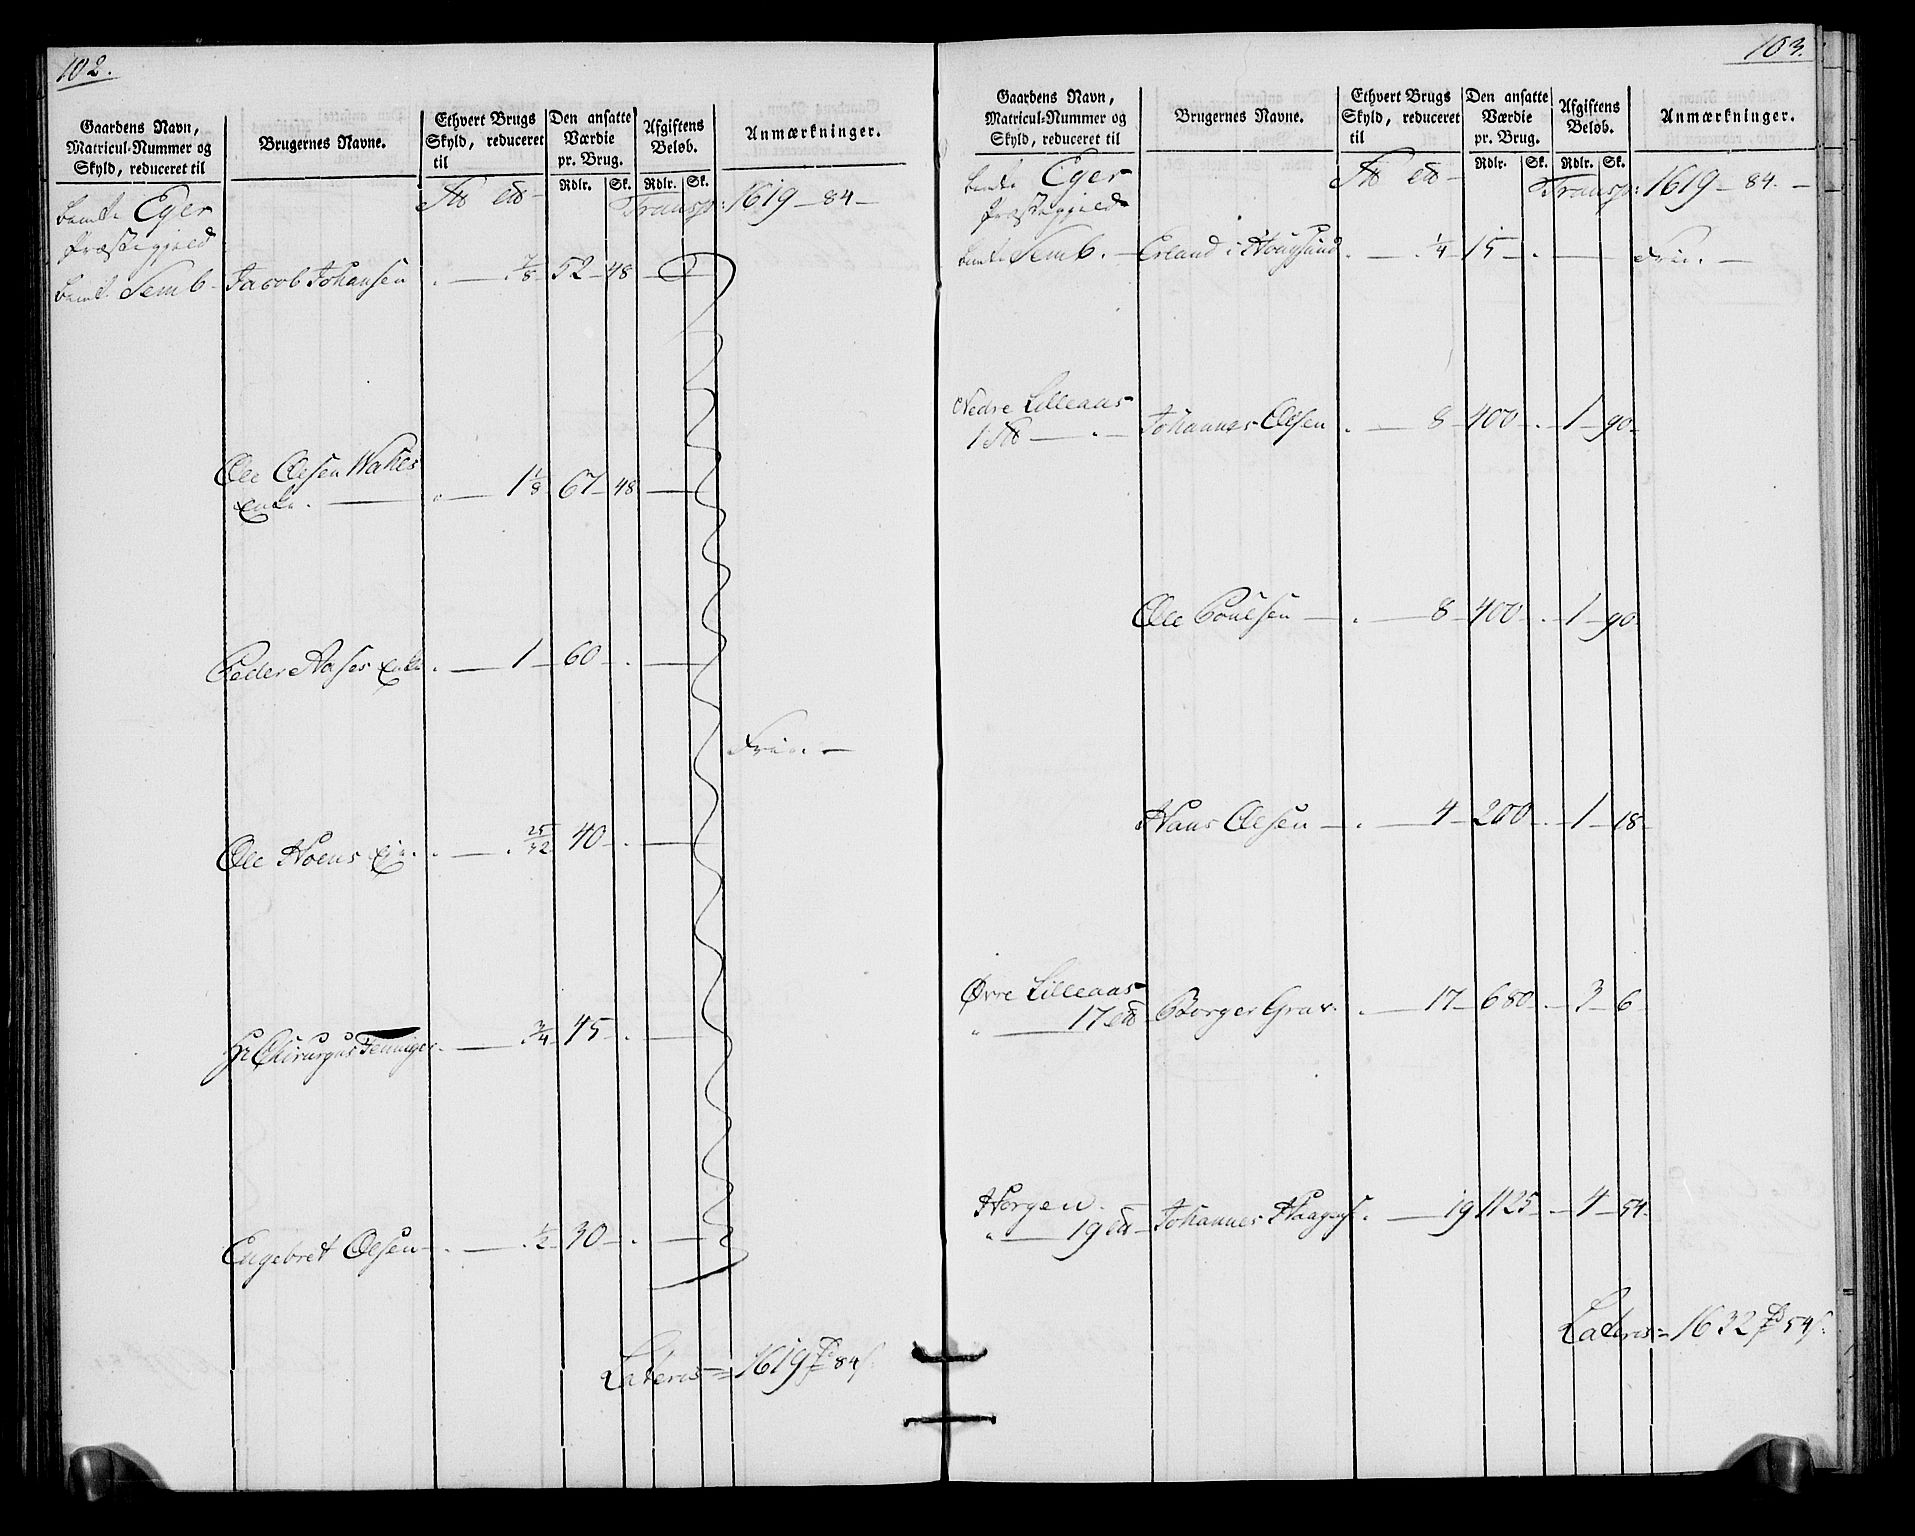 102.
Gaardens Navn,
Matricul-Nummer og
Skyld, reduceret til
Brugernes Navne.
Ethvert Brugs
Skyld, reduceret
til
Den ansatte
Værdie
pr. Brug.
Rdlr. Sk.
Afgiftens
Beløb.
Rdlr. Sk.
Anmærkninger.
Eger
Præstegjeld
Transp: 1619 - 84 -
Semb - Jacob Johansen . - 7/8 - 52 - 48 -
Ole Olesen
Enke . - . - 1 1/8 - 67 - 48 -
Peder Aases Enke . - 1 - 60 - . -
Frie. -
Ole Hoens . - . 25/32 40 - . -
Hr Chirurgus . - . 3/4 - 45 - . -
Engebret Olsen - . - . 1/2 - 30 - . -
Lateris = 1619 84
103.
Gaardens Navn,
Matricul-Nummer og
Skyld, reduceret til
Brugernes Navne.
Ethvert Brugs
Skyld, reduceret
til
Den ansatte
Værdie
pr. Brug.
Rdlr. Sk.
Afgiftens
Beløb.
Rdlr. Sk.
Anmærkninger.
Eger
Præstegjeld
Transp: 1619 - 84. -
Semb. - Erland i Hougsund . - . 1/4 - 15 - . - Frie. -
Nedre Lilleaas
Johannes Olsen . - 8 - 400 - . - 1 - 90 -
Ole Poulsen - . - 8 - 400 - . - 1 - 90 -
Hans Olesen - . - 4 - 200 - . - 1 - 18 -
Øvre Lilleaas -
" - 17 Borger Grav . . - 17 - 680 - . - 3 - 6 -
Horgen.
" - 19 Johannes Haagens . - 19 1125 - . - 4 - 54 -
Lateris = 1632 54